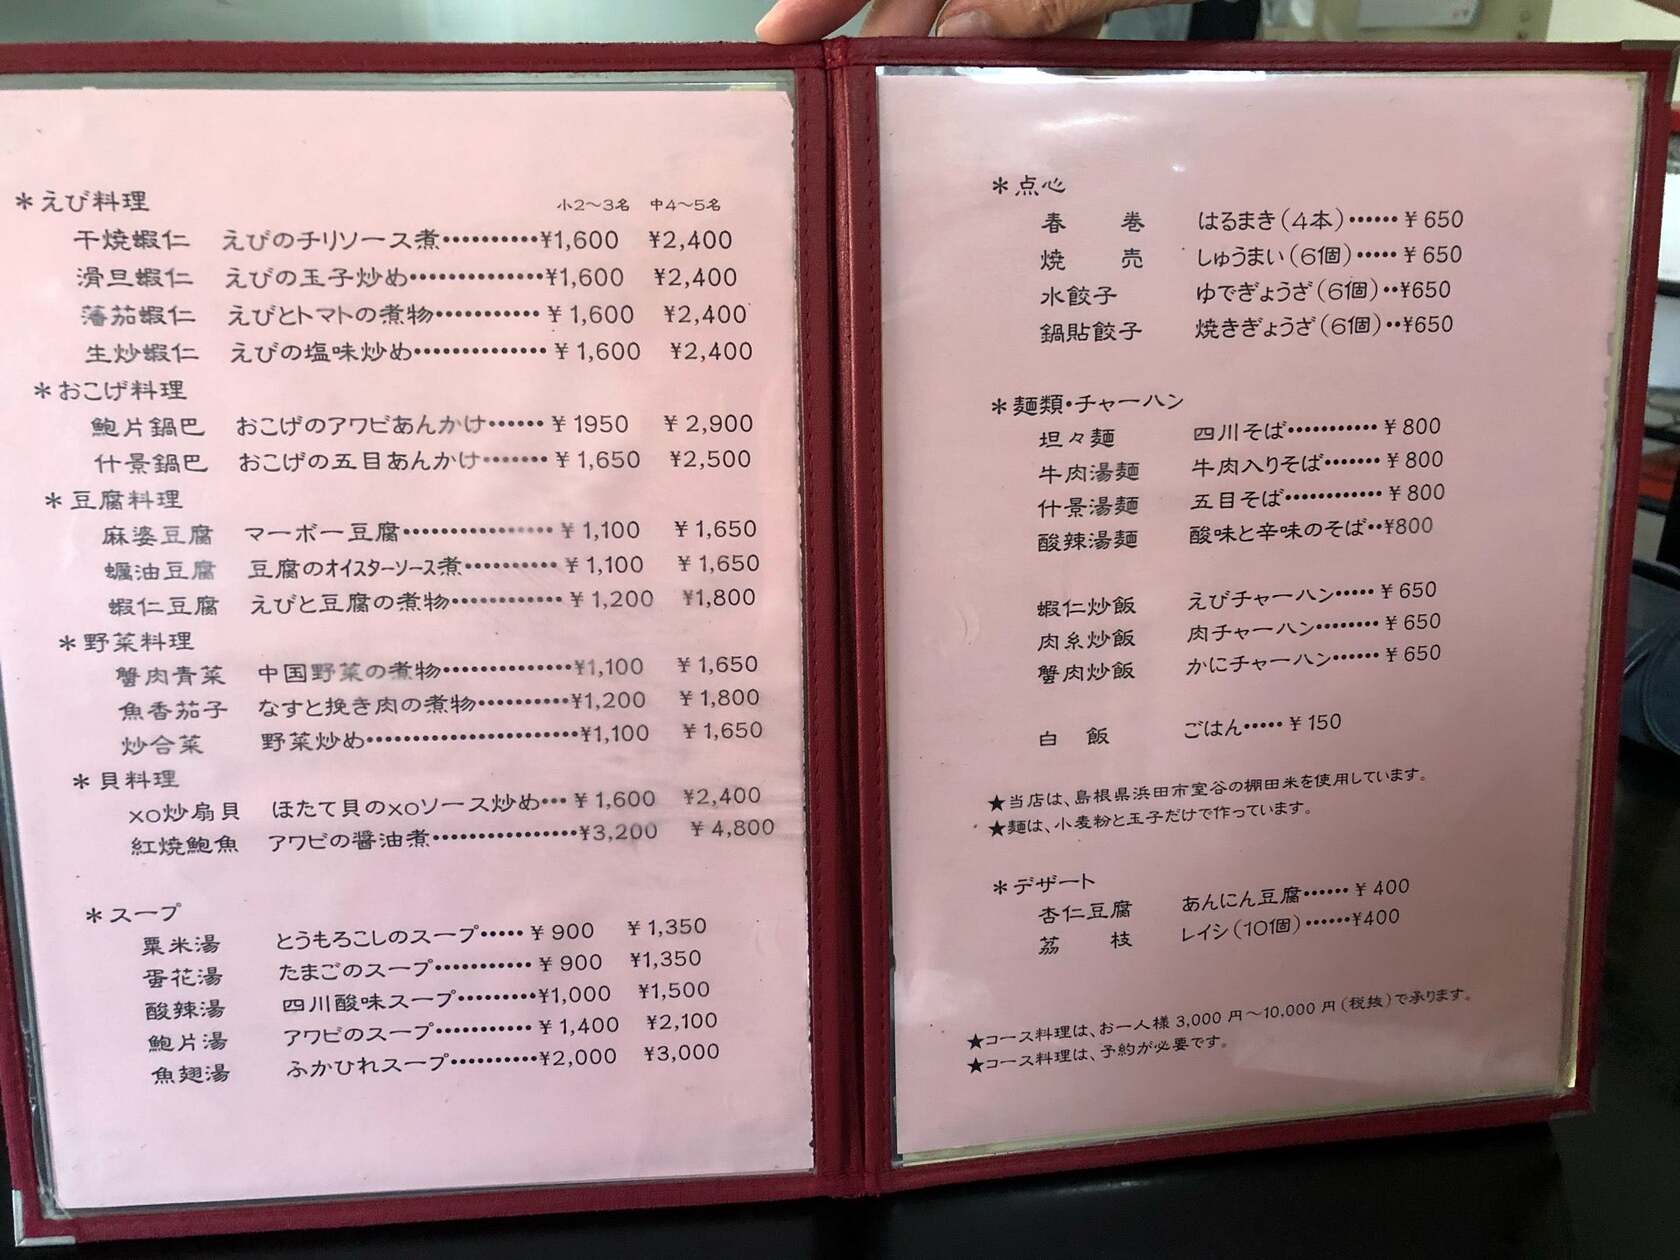 ＊えび料理 小2～3名 中4～5名
干焼蝦仁 えびのチリソース煮··········¥1,600 ¥2,400
滑旦蝦仁 えびの玉子炒め··············¥1,600 ¥2,400
蕃茄蝦仁 えびとトマトの煮物···········¥1,600 ¥2,400
生炒蝦仁 えびの塩味炒め··············¥1,600 ¥2,400
＊おこげ料理
鮑片鍋巴 おこげのアワビあんかけ······¥1950 ¥2,900
什景鍋巴 おこげの五目あんかけ·······¥1,650 ¥2,500
＊豆腐料理
麻婆豆腐 マーボー豆腐················¥1,100 ¥1,650
蠣油豆腐 豆腐のオイスターソース煮··········¥1,100 ¥1,650
蝦仁豆腐 えびと豆腐の煮物············¥1,200 ¥1,800
＊野菜料理
蟹肉青菜 中国野菜の煮物··············¥1,100 ¥1,650
魚香茄子 なすと挽き肉の煮物··········¥1,200 ¥1,800
炒合菜 野菜炒め·······················¥1,100 ¥1,650
＊貝料理
XO炒扇貝 ほたて貝のXOソース炒め···¥1,600 ¥2,400
紅焼鮑魚 アワビの醤油煮················¥3,200 ¥4,800
＊スープ
粟米湯 とうもろこしのスープ·····¥900 ¥1,350
蛋花湯 たまごのスープ···········¥900 ¥1,350
酸辣湯 四川酸味スープ·········¥1,000 ¥1,500
鮑片湯 アワビのスープ···········¥1,400 ¥2,100
魚翅湯 ふかひれスープ··········¥2,000 ¥3,000
＊点心
春巻 はるまき(4本)······¥650
焼売 しゅうまい(6個)·····¥650
水餃子 ゆでぎょうざ(6個)··¥650
鍋貼餃子 焼きぎょうざ(6個)··¥650
＊麺類・チャーハン
坦々麺 四川そば···········¥800
牛肉湯麺 牛肉入りそば·······¥800
什景湯麺 五目そば············¥800
酸辣湯麺 酸味と辛味のそば··¥800
蝦仁炒飯 えびチャーハン·····¥650
肉糸炒飯 肉チャーハン········¥650
蟹肉炒飯 かにチャーハン······¥650
白飯 ごはん·····¥150
★当店は、島根県浜田市室谷の棚田米を使用しています。
★麺は、小麦粉と玉子だけで作っています。
＊デザート
杏仁豆腐 あんにん豆腐······¥400
荔枝 レイシ(10個)······¥400
★コース料理は、お一人様3,000円～10,000円(税抜)で承ります。
★コース料理は、予約が必要です。